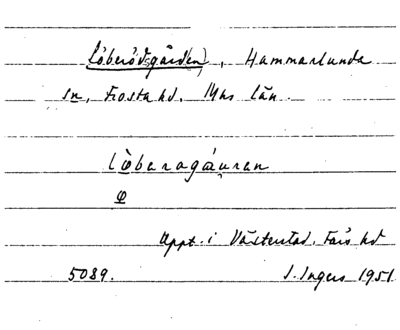 Löberödsgården), Hammarlunda
sn, Frosta hd, Mhs län.
lòberagáuran
φ
Uppt. i Västerstad, Färs hd
5089. I. Ingers 1951